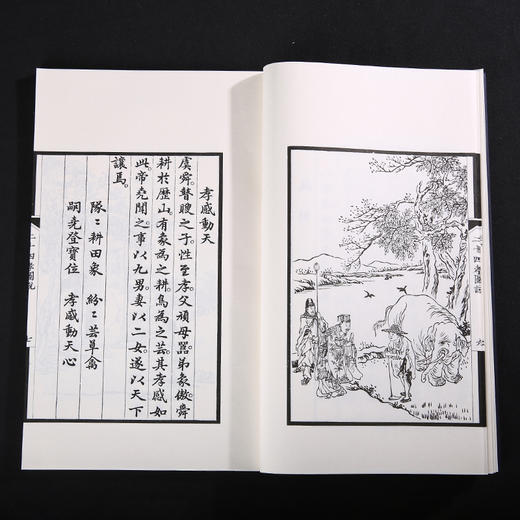 二十四孝圖說
六
孝感動天
虞舜瞽瞍之子。性至孝。父頑母嚚。弟象傲。舜
耕於歷山。有象為之耕。鳥為之芸。其孝感如
此。帝堯聞之。事以九男。妻以二女。遂以天下
讓焉。
隊〻耕田象　紛〻芸草禽
嗣堯登寶位　孝感動天心
二十四孝圖說
七